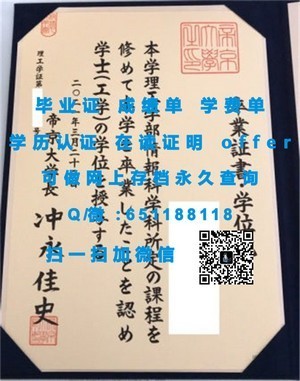 卒業証書・学位
本学理工学部情報科学科所定の課程を
修めて本学を卒業したことを認め
学士(工学)の学位を授与する
帝京大学長 冲永佳史
理工学証第 号
毕业证 成绩单 学费单
学历认证 在读证明 offer
可做网上存档永久查询
Q/微:651188118
扫一扫加微信